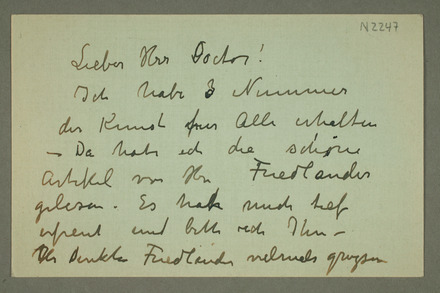 N2247
Lieber Herr Doctor!
Ich habe 3 Nummer
der Kunst fur Alle erhalten
– Da habe ich die schöne
Artikel von Hr Friedlander
gelesen. Es hat mich tief
erfreut und bitte ich Ihn –
Friedlander vielmals